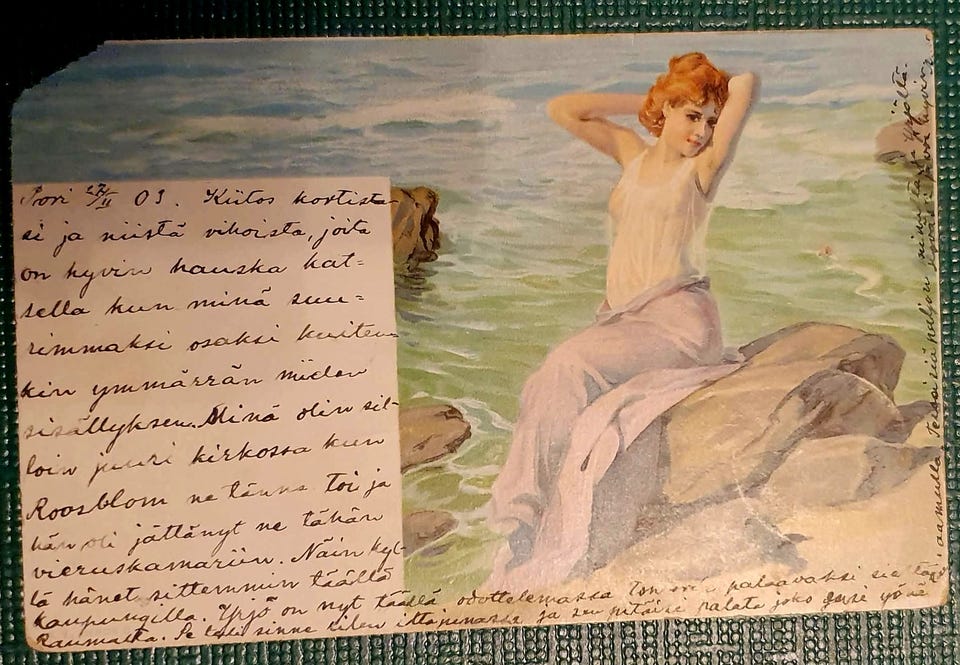 Pori 27/II 03. Kiitos kortista-
si ja niistä vihoista, joita
on hyvin hauska kat=
sella kun minä suu=
rimmaksi osaksi kuiten-
kin ymmärrän niiden
sisällyksen. Minä olin sil-
loin juuri kirkossa kun
Roosblom ne tänne toi ja
hän oli jättänyt ne tähän
vieruskamariin. Näin kyl-
lä hänet sittemmin täällä
kaupungilla. Yrjö on nyt täällä odottelemassa palaavaksi sieltä
Raumalta. Se tuli sinne eilen iltapuvassa ja sen pitäisi palata joko ense yönä
aamulla. paljon Yrjöltä.
hyvin